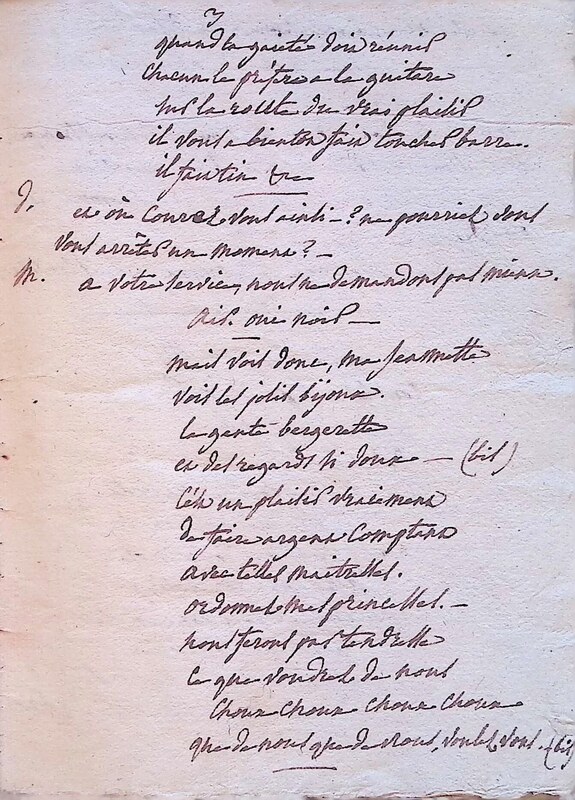 3
quand la gaieté doit réunir
chacun le préfere a la guitare
sur la route du vrai plaisir
il vous a bientôt fait toucher barre.
il fait tin &c
J. et où courez vous ainsi — ? ne pourriez vous
vous arrêter un moment ? —
M. a votre service, nous ne demandons pas mieux.
air. oui noir —
mais vois donc, ma jeannette
vois les jolis bijoux.
la gente bergerette
et des regards si doux — (bis)
C'est un plaisir vraiment
de faire argent comptant
avec telles maitresses.
ordonnez mes princesses. —
nous ferons par tendresse
ce que voudrez de nous
choux choux choux choux
que de nous que de nous, voulez vous. (bis)